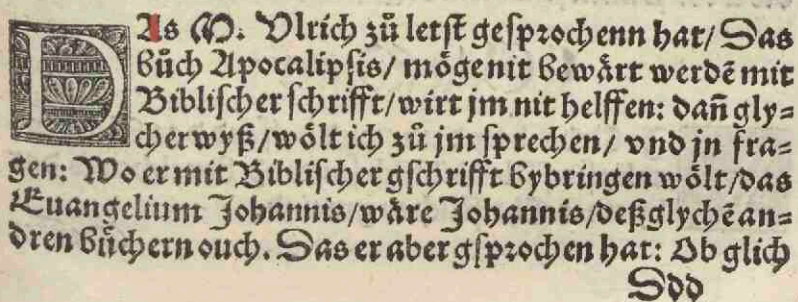 DAs M. Vlrich zů letſt geſprochenn hat/ Das
bůch Apocalipſis/ mögenit bewårt werdē mit
Bibliſcher ſchrifft/ wirt jm nit helffen: dañ gly⸗
cher wyß/ wölt ich zů jm ſprechen/ vnd jn fra⸗
gen: Wo er mit Bibliſcher gſchrifft bybringen wölt/ das
Euangelium Johannis/ wåre Johannis/ deßglychē an⸗
dren bůchern ouch. Das er aber gſprochen hat: Ob glich
Ddd